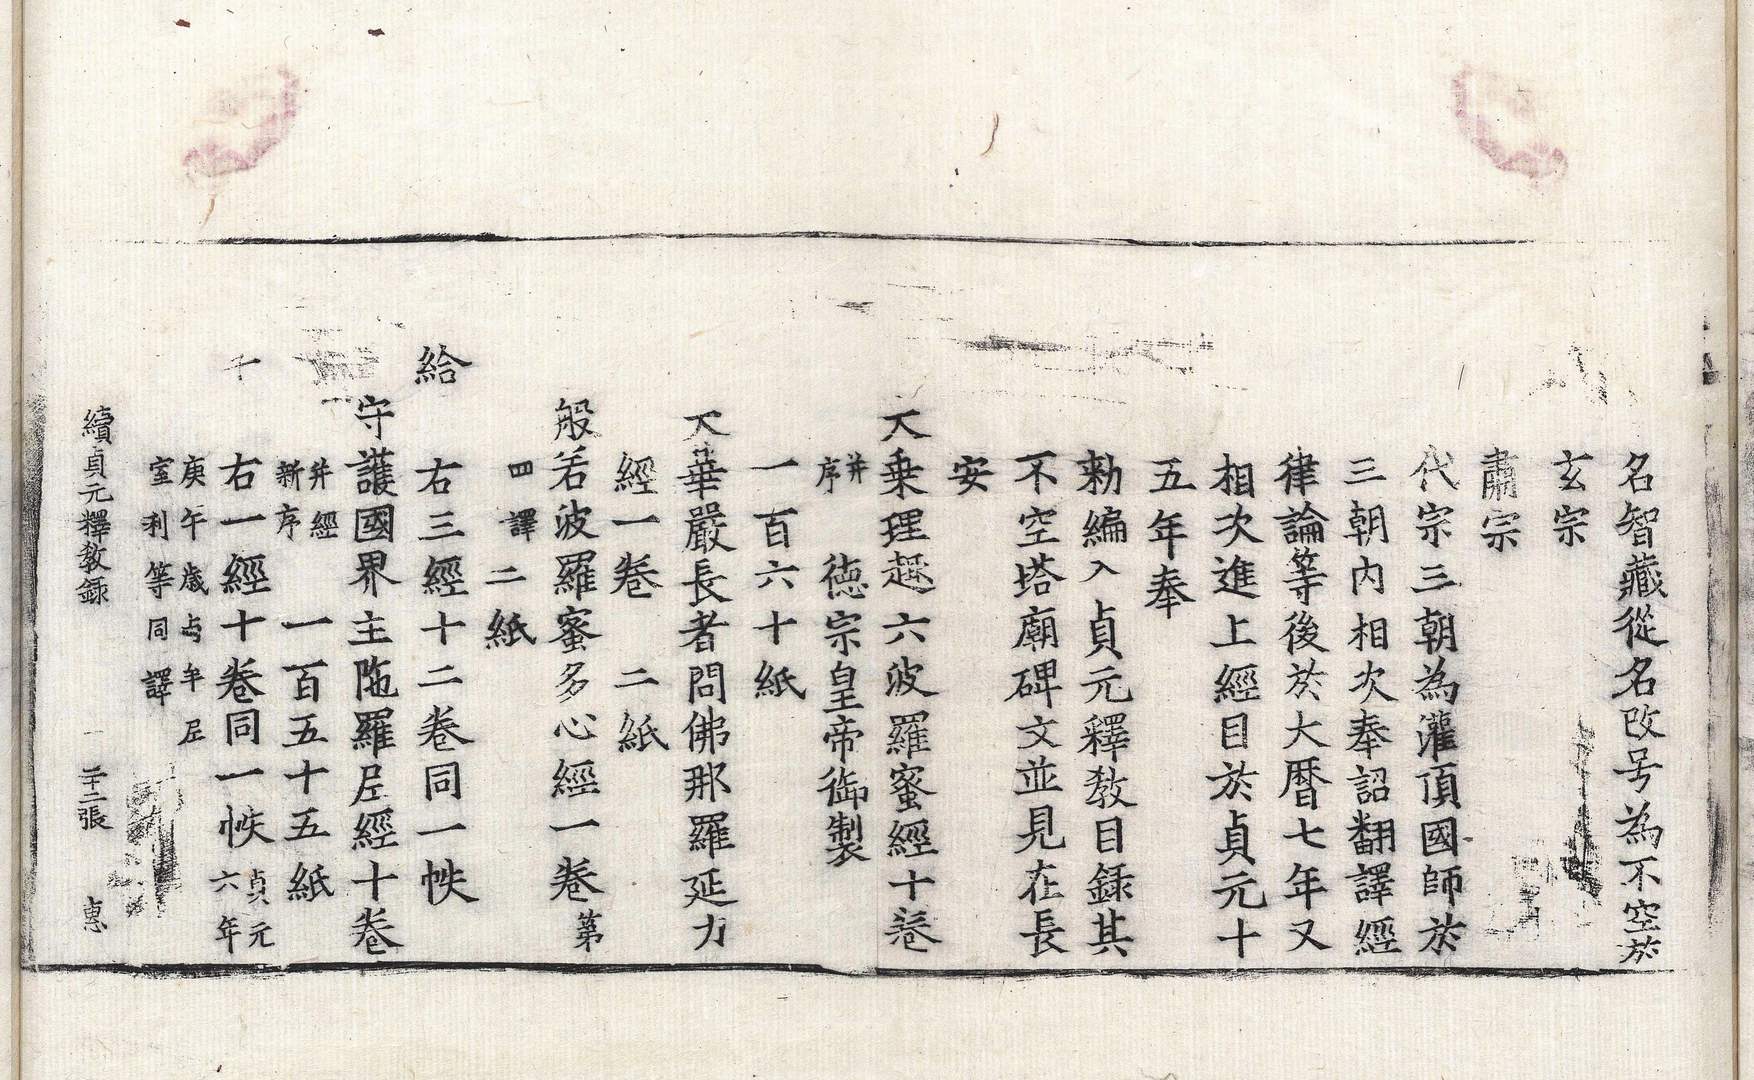 名智藏從名改号為不空於
玄宗
肅宗
代宗三朝為灌頂國師於
三朝內相次奉詔翻譯經
律論等後於大曆七年又
相次進上經目於貞元十
五年奉
勑編入貞元釋教目録其
不空塔廟碑文並見在長
安
大乗理趣六波羅蜜經十巻
并序 徳宗皇帝御製
一百六十紙
大華嚴長者問佛那羅延力
經一巻 二紙
般若波羅蜜多心經一巻第
四譯 二紙
給
右三經十二巻同一帙
守護國界主陁羅尼經十巻
并經新序 一百五十五紙
千
右一經十巻同一帙貞元六年
庚午歳 牟尼
室利等同譯
續貞元釋教録 二十二張 惠